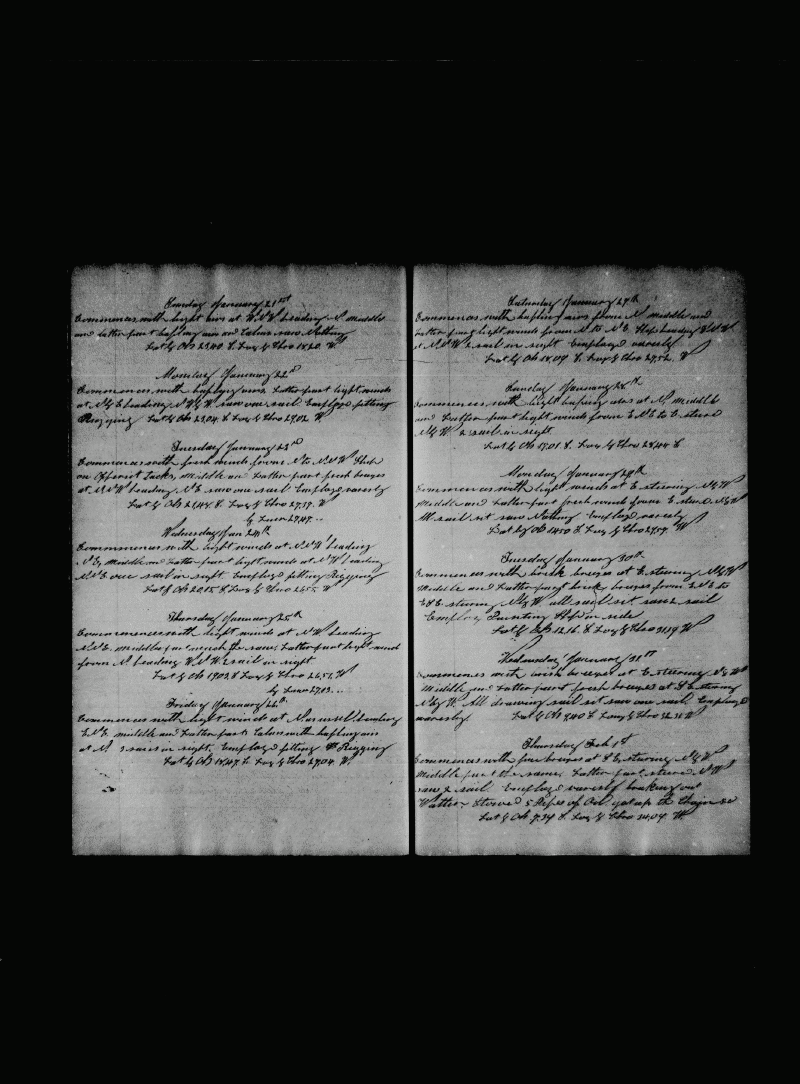 Sunday January 21st
Commences with light airs at W.N.W. heading N. Middle
and latter part bafling airs and Calms saw Nothing
Lat by Ob 23,40 S. Long by Chro 28,20. W
Monday January 22d
Commences with bafling airs. Latter part light winds
at N by E heading N W by W saw one sail Employed fitting
Rigging Lat by Ob 23,04. S. Long by Chro 29,02. W
Tuesday January 23d
Commences with fresh winds from N to N.N.W. Ship
on Different Tacks, Middle and Latter part fresh breezes
at N.N.W heading N.E saw one sail Employed variously
Lat by Ob S. Long by Chro 27,57. W
by Lunar 29,47
Wednesday Jan 24th
Commences with light winds at N.N.W heading
N.E. Middle and Latter part light winds at N.W heading
N.N.E one sail in sight. Employed fitting Rigging
Lat by Ob 20,15. S. Long by Chro 26,55. W
Thursday January 25th
Commences with light winds at N.W heading
N.N.E. Middle part much the same, Latter part light winds
from N. heading W.N.W 2 sail in sight
Lat by Ob 19,03 S Long by Chro 26,51, W
by Lunar 27,03
Friday January 26th
Commences with light winds at N heading
E.N.E. middle and Latter part Calms with bafling airs
at N. 3 sails in sight. Employed fitting Rigging
Lat by Ob 18,47. S. Long by Chro 27,04. W.
Saturday January 27th
Commences with bafling airs from N. middle and
latter part light winds from N. to N.E. Ship heading
at N.N.W 2 sail in sight Employed variously
Lat by Ob 18,08. S. Long by Chro 27,52. W
Sunday January 28th
Commences with light bafling airs at N. Middle
and Latter part light winds from E.N.E to E. steered
N by W 2 sail in sight
Lat by Ob 17,01 S. Long by Chro 28,44
Monday January 29th
Commences with light winds at E steering N by W
Middle and Latter part fresh winds from E. steered N by W
All sail set saw Nothing Employed variously
Lat by Ob 14,50 S. Long by Chro 29,59. W
Tuesday January 30th
Commences with brisk breezes at E. steering N by W
Middle and Latter part brisk breezes from E.N.E to
E.S.E steering N by W all sail set saw 2 sail
Employed Painting Ship in side
Lat by Ob 12,16. S Long by Chro 31,19 W
Wednesday January 31st
Commences with brisk breezes at E steering N by W
Middle and Latter part fresh breezes at S.E steering
N by W. All drawing sail set saw one sail Employed
variously Lat by Ob 9,40 S. Long by Chro 32,32 W
Thursday Feb 1st
Commences with fine breezes at S.E. steering N by W
Middle part the same. Latter part steered N.W
saw 2 sail. Employed variously breaking out
Watter. Stowed 5 Pipes of Oil got up the
Lat by Ob 7,34 S. Long by Chro 34,04. W